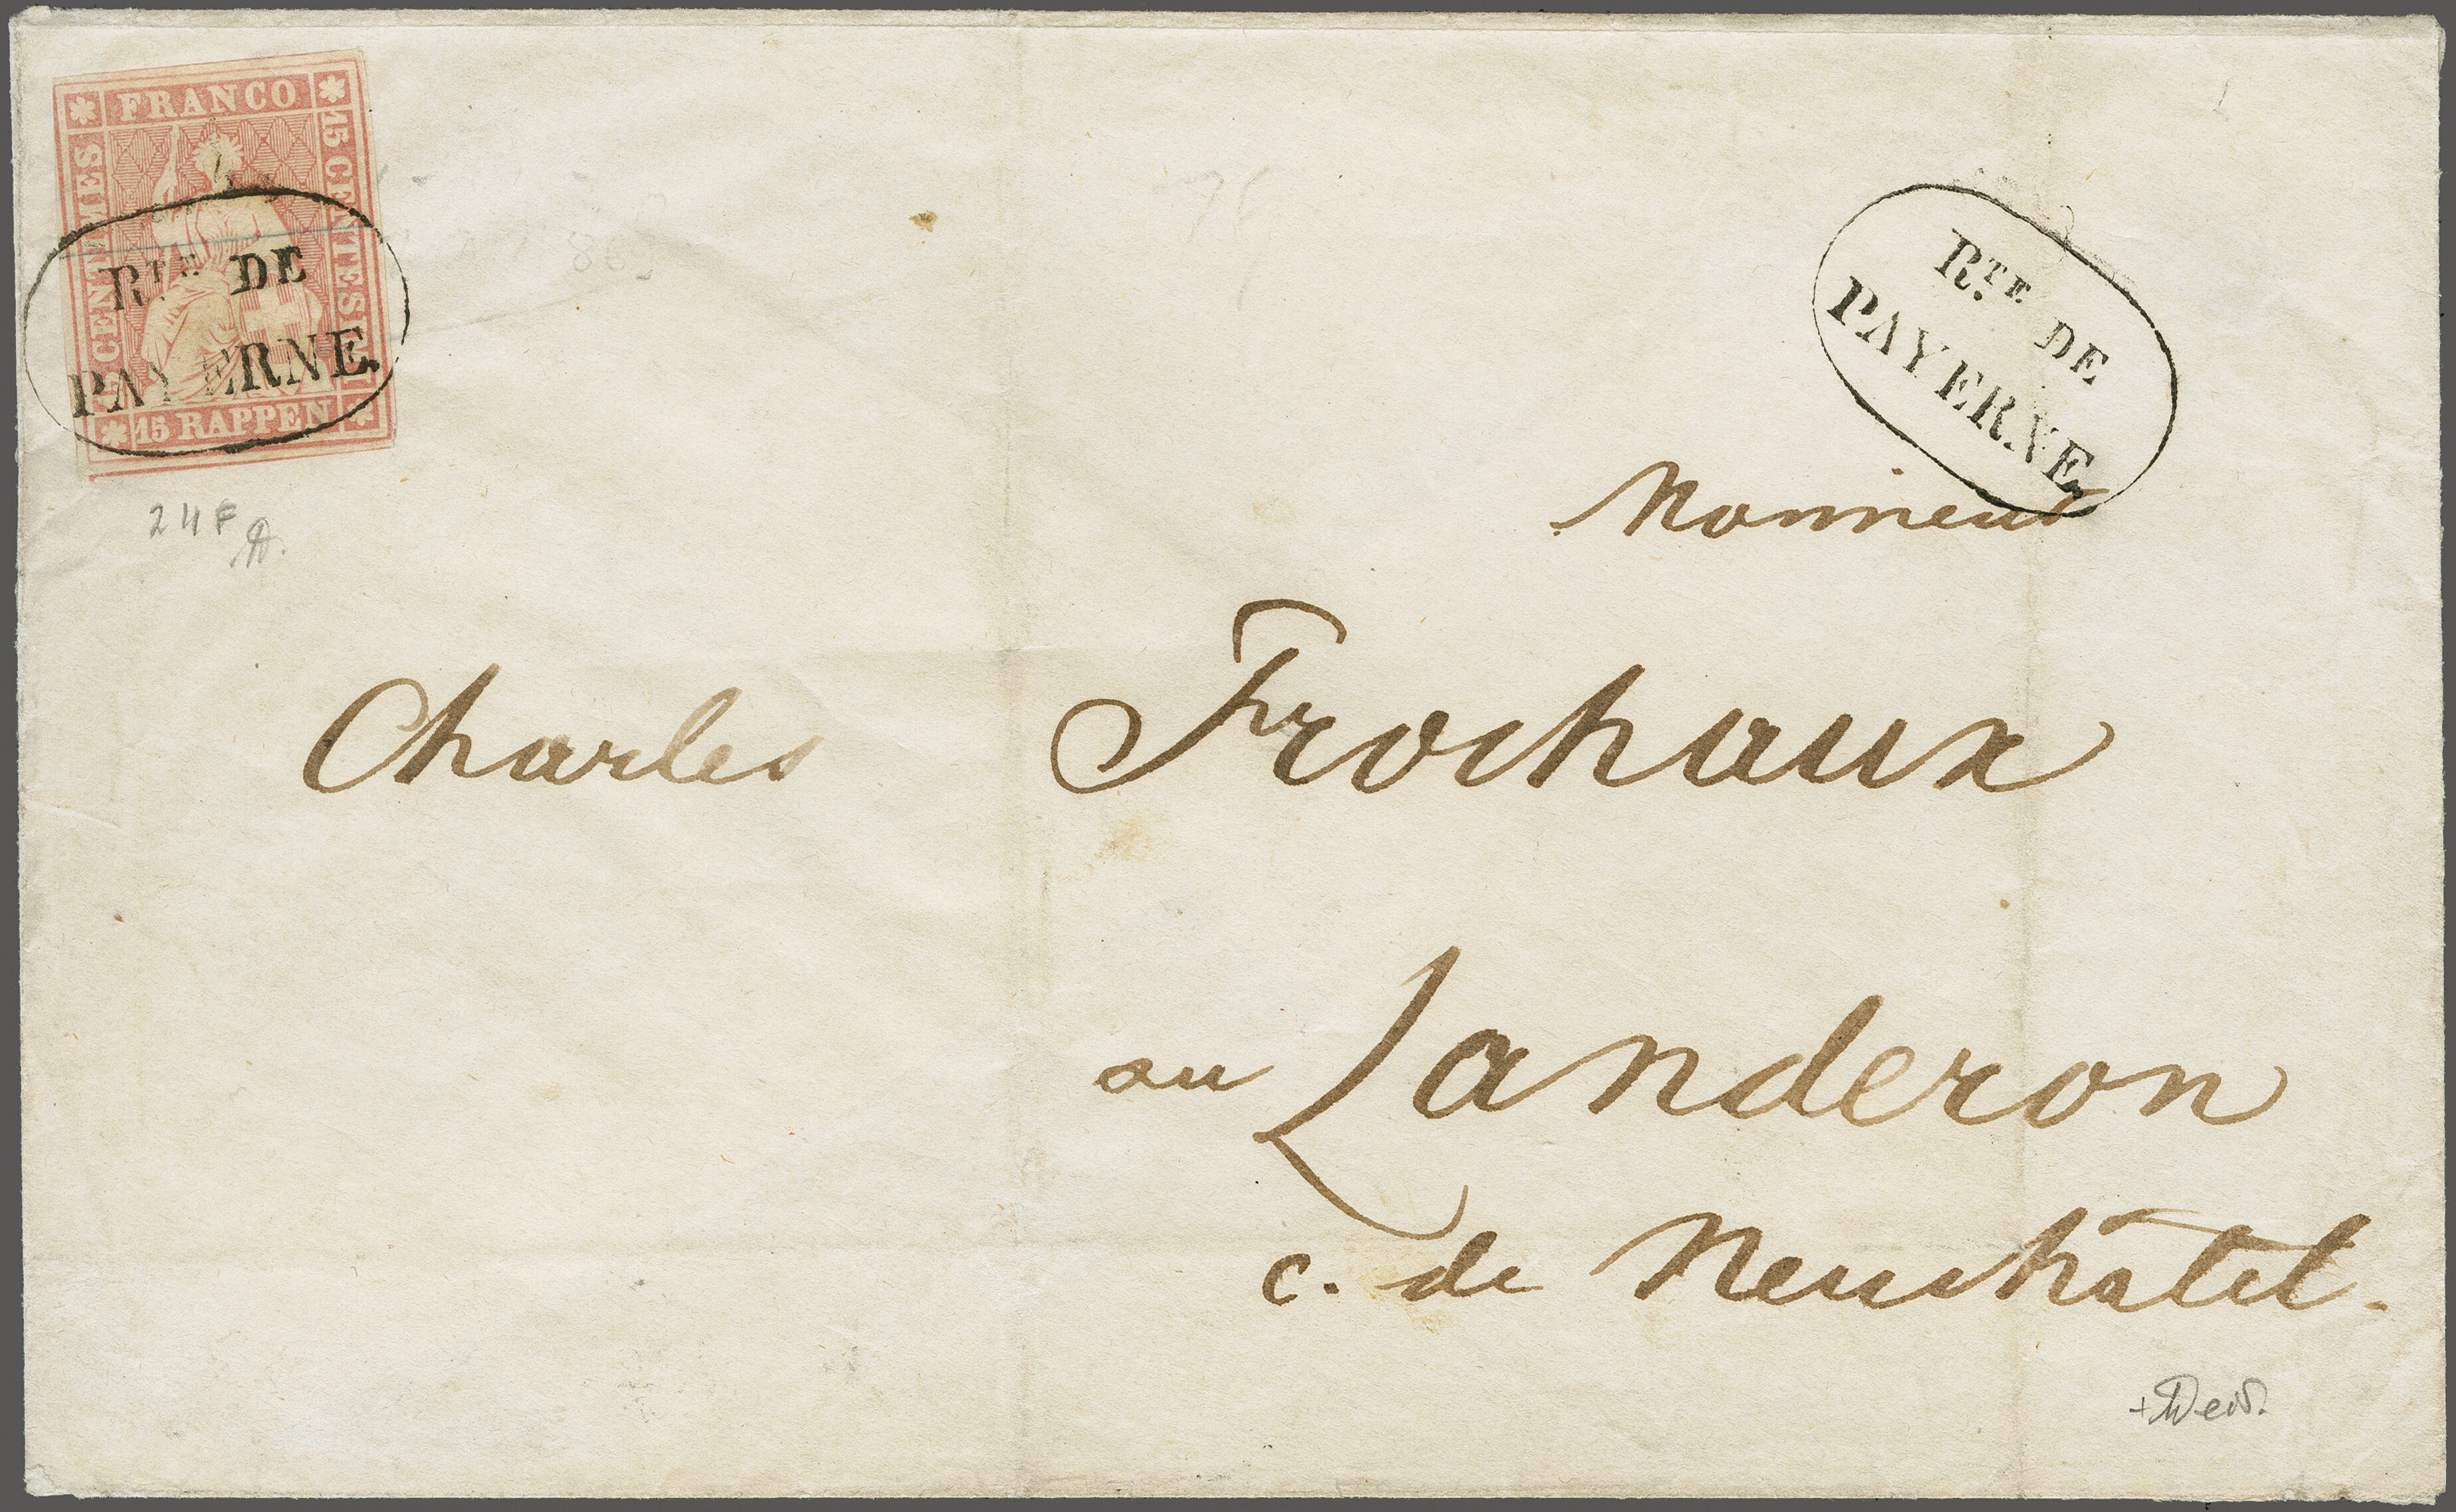 FRANCO
15 CENTESIMI
CENTIMES
15 RAPPEN
RTE DE
PAYERNE.
RTE DE
PAYERNE.
24F
Monsieur
Charles Frochaux
au Landeron
c. de Neuchâtel.